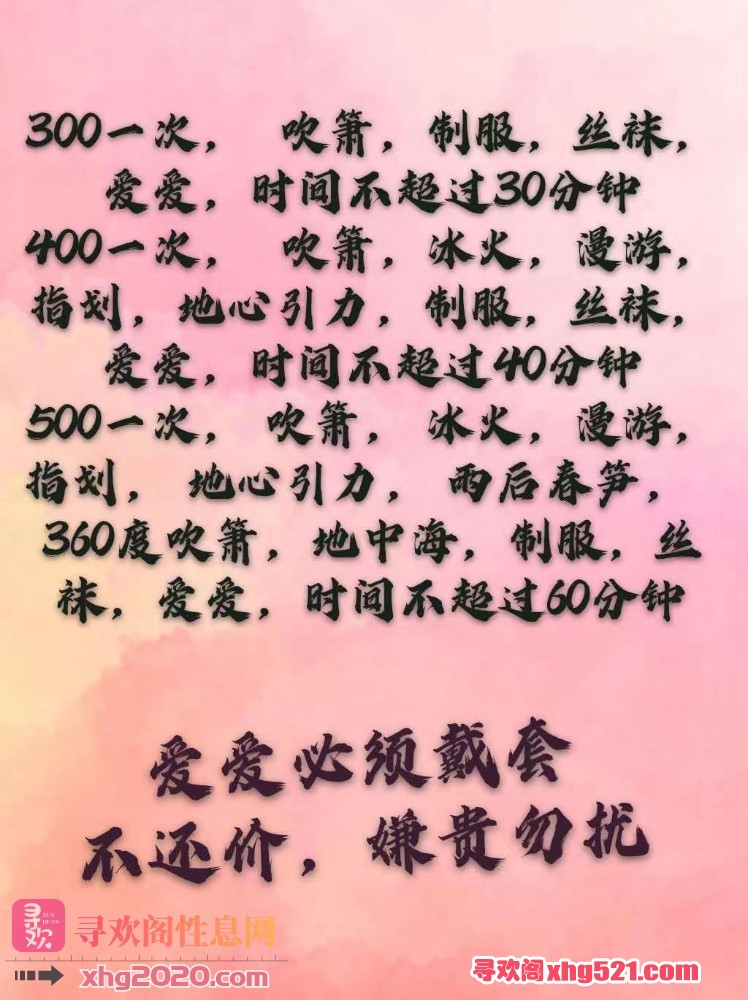 300一次， 吹箫，制服，丝袜，
爱爱，时间不超过30分钟
400一次， 吹箫，冰火，漫游，
指划，地心引力，制服，丝袜，
爱爱，时间不超过40分钟
500一次， 吹箫，冰火，漫游，
指划，地心引力，雨后春笋，
360度吹箫，地中海，制服，丝
袜，爱爱，时间不超过60分钟
爱爱必须戴套
不还价，嫌贵勿扰
寻欢
寻欢阁性息网
xhg2020.com
寻欢阁xhg521.com